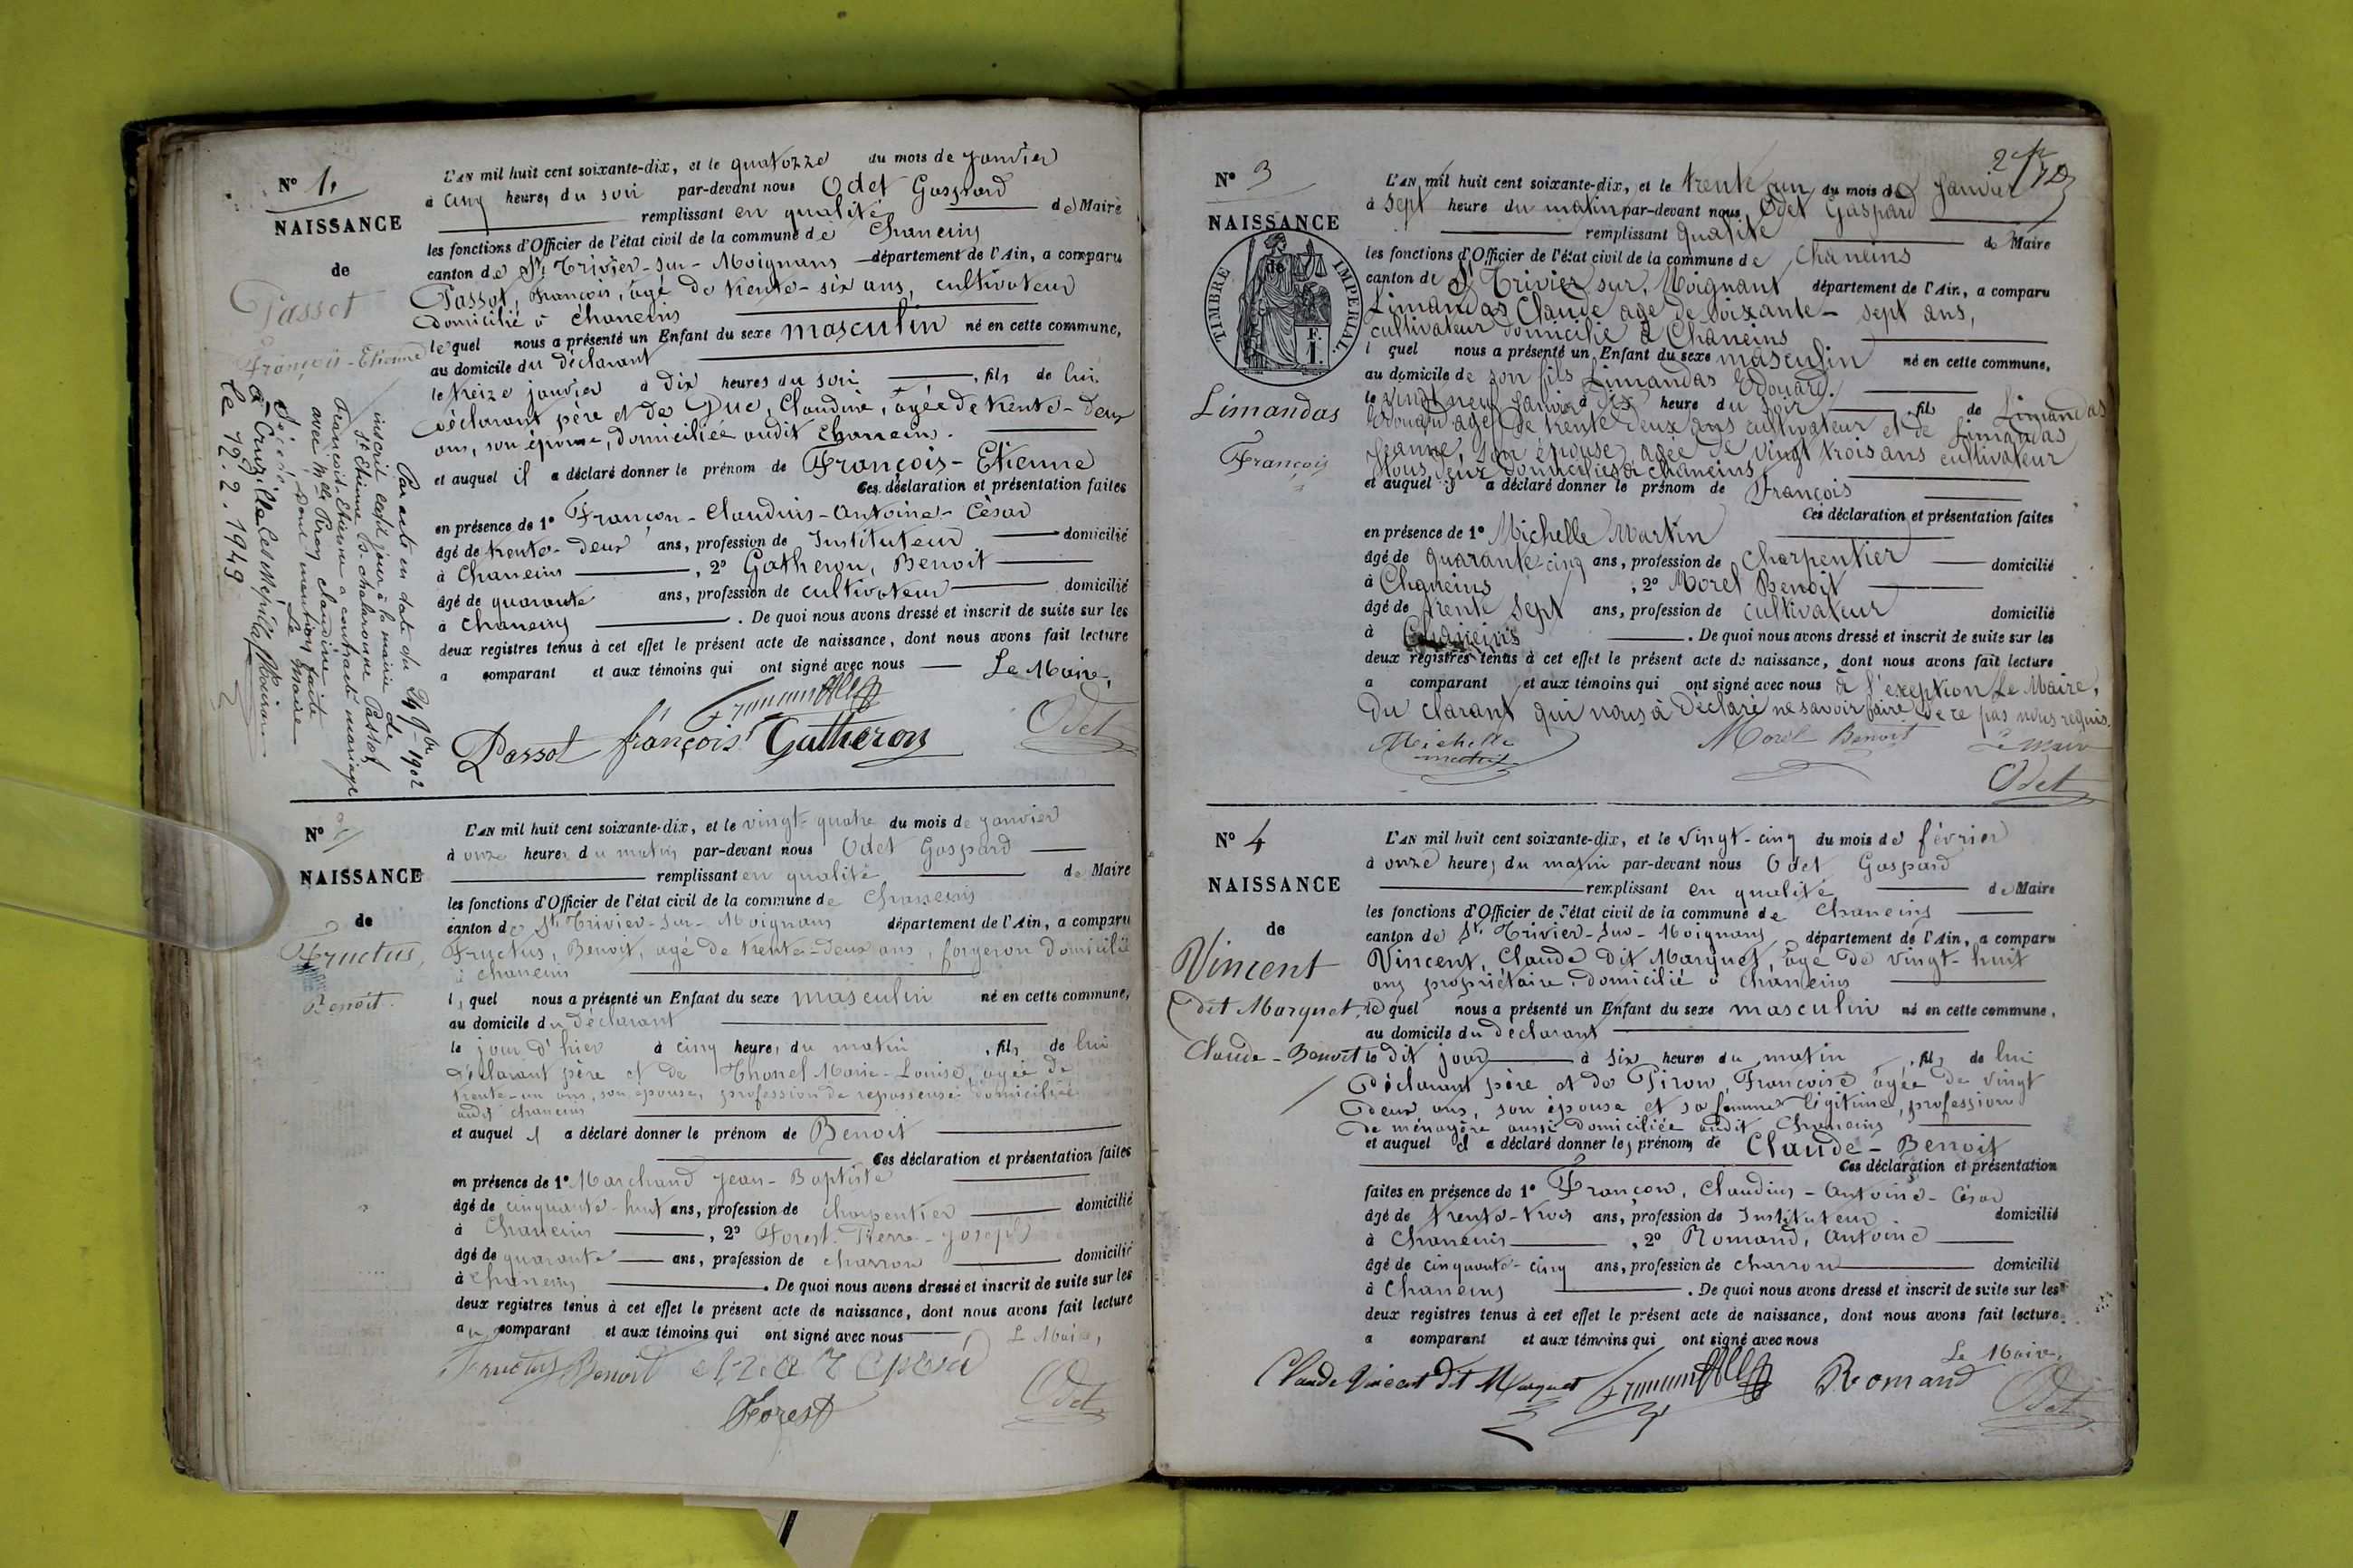 N° 1.
NAISSANCE
de
Passot
François-Etienne
L'AN mil huit cent soixante-dix, et le quatorze du mois de janvier
à cinq heures du soir par-devant nous Odet Gaspard
remplissant en qualité de Maire
les fonctions d'Officier de l'état civil de la commune de Chaneins
canton de St Trivier-sur-Moignans département de l'Ain, a comparu
Passot, François, âgé de trente-six ans, cultivateur
domicilié à Chaneins
lequel nous a présenté un Enfant du sexe masculin né en cette commune,
au domicile du déclarant
le treize janvier à dix heures du soir, fils de lui
déclarant père et de Duc, Claudine, âgée de trente-deux
ans, son épouse, domiciliée audit Chaneins.
et auquel il a déclaré donner le prénom de François-Etienne
Ces déclaration et présentation faites
en présence de 1° Françon-Claudius-Antoine-César
âgé de trente-deux ans, profession de Instituteur domicilié
à Chaneins, 2° Gatheron, Benoit
âgé de quarante ans, profession de cultivateur domicilié
à Chaneins. De quoi nous avons dressé et inscrit de suite sur les
deux registres tenus à cet effet le présent acte de naissance, dont nous avons fait lecture
a comparant et aux témoins qui ont signé avec nous Le Maire,
Passot françois Gatheron Odet
Par acte en date du 29 9bre 1902
inscrit ledit jour à la mairie de
St Etienne s. chalaronne Passot,
François-Etienne a contracté mariage
avec Mlle Péron claudine
Dont mention faite
Le Maire
Décédé
à Cruzilles les Mépillat
le 12.2.1949
N° 2
NAISSANCE
de
Fructus,
Benoit.
L'AN mil huit cent soixante-dix, et le vingt-quatre du mois de janvier
à onze heures du matin par-devant nous Odet Gaspard
remplissant en qualité de Maire
les fonctions d'Officier de l'état civil de la commune de Chaneins
canton de St Trivier-sur-Moignans département de l'Ain, a comparu
Fructus, Benoit, agé de trente-deux ans, forgeron domicilié
à Chaneins
lequel nous a présenté un Enfant du sexe masculin né en cette commune,
au domicile du déclarant
le jour d'hier à cinq heures du matin, fils de lui
déclarant père et de Thonel Marie-Louise, agée de
trente-un ans, son épouse, profession de repasseuse domiciliée
audit Chaneins
et auquel il a déclaré donner le prénom de Benoit
Ces déclaration et présentation faites
en présence de 1° Marchand Jean-Baptiste
âgé de cinquante-huit ans, profession de charpentier domicilié
à Chaneins, 2° Forest Pierre-Joseph
âgé de quarante ans, profession de charron domicilié
à Chaneins. De quoi nous avons dressé et inscrit de suite sur les
deux registres tenus à cet effet le présent acte de naissance, dont nous avons fait lecture
au comparant et aux témoins qui ont signé avec nous Le Maire,
Fructus Benoit Odet
Forest
N° 3
NAISSANCE
de
TIMBRE IMPERIAL.
F.
1.
Limandas
François
L'AN mil huit cent soixante-dix, et le trente un du mois de Janvier
à sept heure du matin par-devant nous Odet Gaspard
remplissant qualité de Maire
les fonctions d'Officier de l'état civil de la commune de Chaneins
canton de St Trivier sur Moignant département de l'Ain, a comparu
Limandas Claude age de soixante-sept ans,
cultivateur domicilié à Chaneins
l quel nous a présenté un Enfant du sexe masculin né en cette commune,
au domicile de son fils Limandas Edouard.
le vingt neuf Janvier à six heure du soir, fils de Limandas
Edouard age de trente deux ans cultivateur et de Limandas
Jeanne, son épouse agée de vingt trois ans cultivateur
tous deux domiciliés à Chaneins
et auquel il a déclaré donner le prénom de François
Ces déclaration et présentation faites
en présence de 1° Michelle Martin
âgé de quarante-cinq ans, profession de Charpentier domicilié
à Chaneins, 2° Morel Benoit
âgé de trente sept ans, profession de cultivateur domicilié
à Chaneins. De quoi nous avons dressé et inscrit de suite sur les
deux registres tenus à cet effet le présent acte de naissance, dont nous avons fait lecture
a comparant et aux témoins qui ont signé avec nous à l'exeption Le Maire,
Du clarant qui nous à Déclaré ne savoir faire de ce pas nous requis.
Michelle Morel Benoit Le Maire
martin Odet
N° 4
NAISSANCE
de
Vincent
dit Marquet,
Claude-Benoit
L'AN mil huit cent soixante-dix, et le vingt-cinq du mois de février
à onze heures du matin par-devant nous Odet Gaspard
remplissant en qualité de Maire
les fonctions d'Officier de l'état civil de la commune de Chaneins
canton de St Trivier-sur-Moignans département de l'Ain, a comparu
Vincent, Claude dit Marquet, âgé de vingt-huit
ans propriétaire, domicilié à Chaneins
lequel nous a présenté un Enfant du sexe masculin né en cette commune,
au domicile du déclarant
le dit jour à six heures du matin, fils de lui
déclarant père et de Piron, Françoise âgée de vingt
deux ans, son épouse et sa femme légitime, profession
de ménagère aussi domiciliée audit Chaneins
et auquel il a déclaré donner les prénoms de Claude-Benoit
Ces déclaration et présentation
faites en présence de 1° Françon, Claudius-Antoine-César
âgé de trente-trois ans, profession de Instituteur domicilié
à Chaneins, 2° Romand, Antoine
âgé de cinquante-cinq ans, profession de charron domicilié
à Chaneins. De quoi nous avons dressé et inscrit de suite sur les
deux registres tenus à cet effet le présent acte de naissance, dont nous avons fait lecture
a comparant et aux témoins qui ont signé avec nous
Le Maire,
Claude Vincent dit Marquet Romand Odet